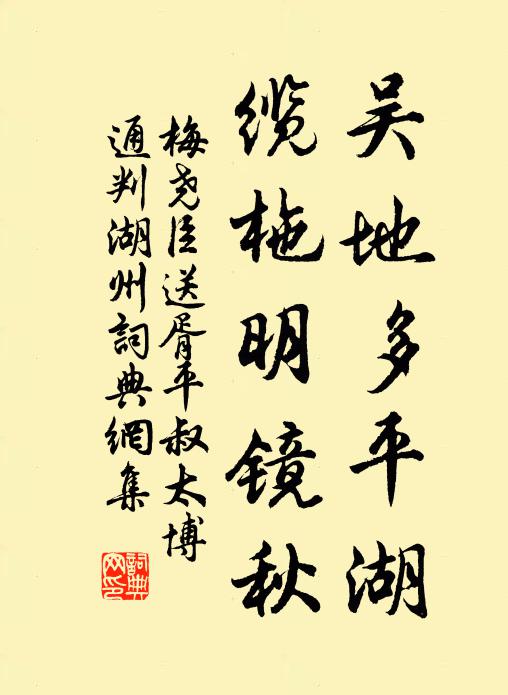 吴地多平湖
缆柂明镜秋
梅尧臣送胥平叔太博
通判湖州詞典網集
詞典
网印